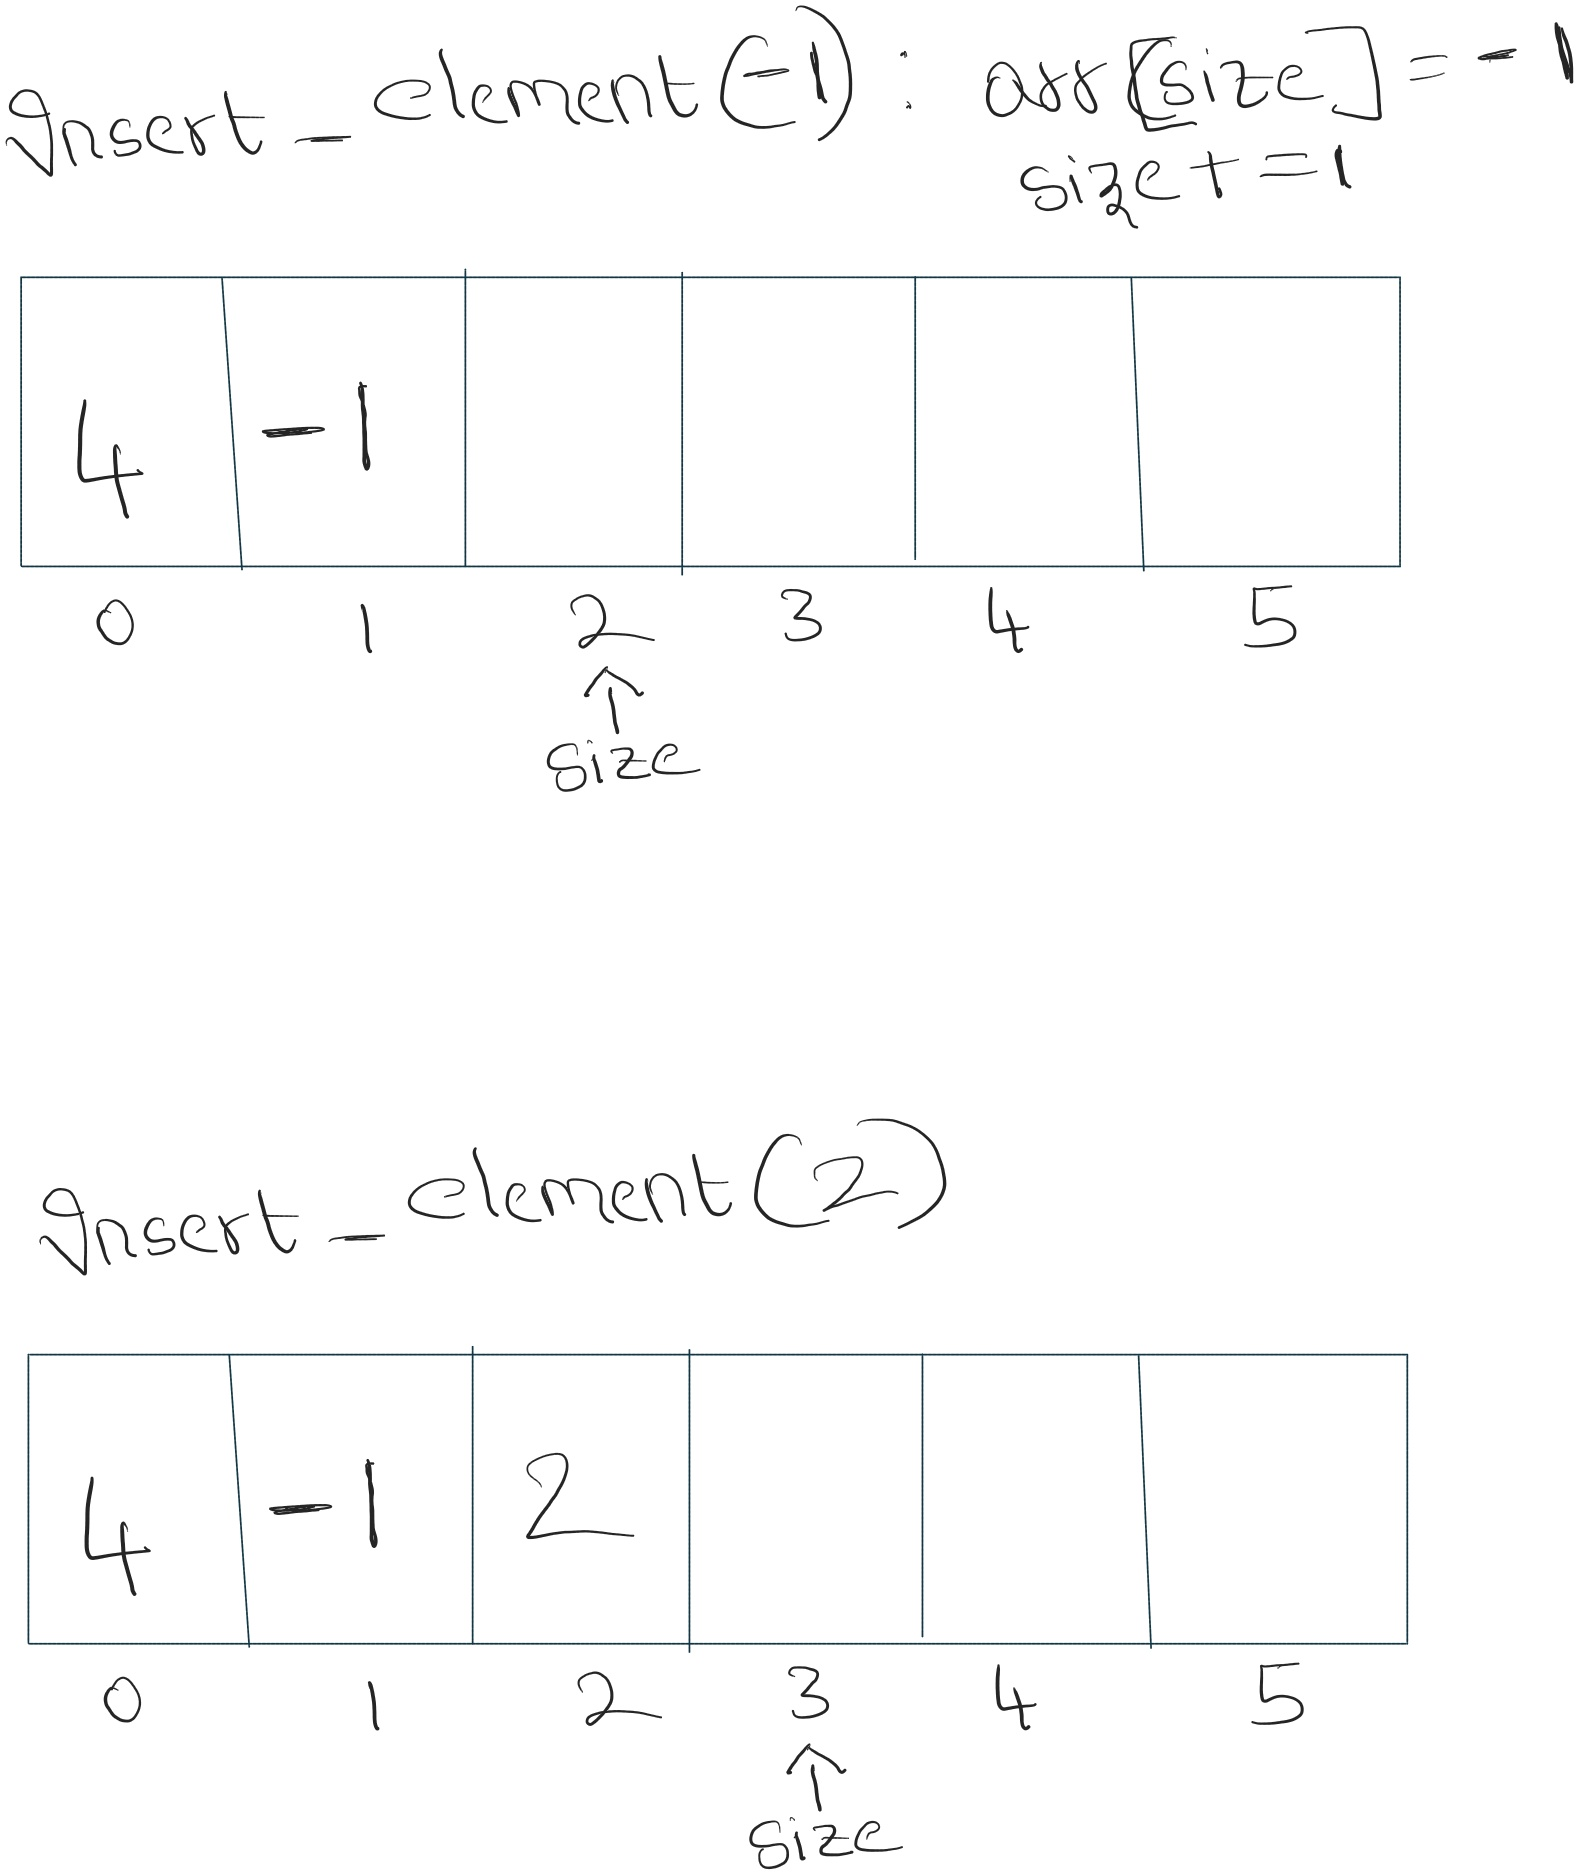 Insert_element(-1): arr[size] = -1
size += 1
4 -1
0 1 2 3 4 5
size
Insert_element(2)
4 -1 2
0 1 2 3 4 5
size